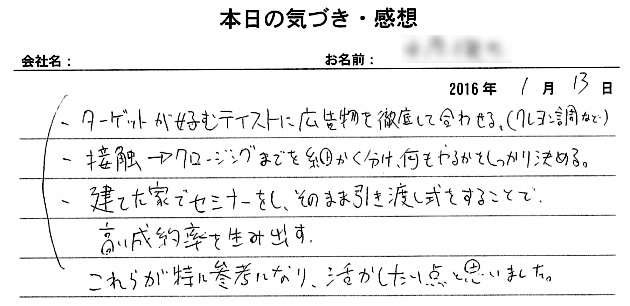 本日の気づき・感想
会社名：
お名前：
2016年 1月 13日
- ターゲットが好むテイストに広告物を徹底して合わせる。(クレヨン調など)
- 接触→クロージングまでを細かく分け、何をやるかをしっかり決める。
- 建てた家でセミナーをし、そのまま引き渡し式をすることで、
高い成約率を生み出す。
これらが特に参考になり、活かしたい点と思いました。